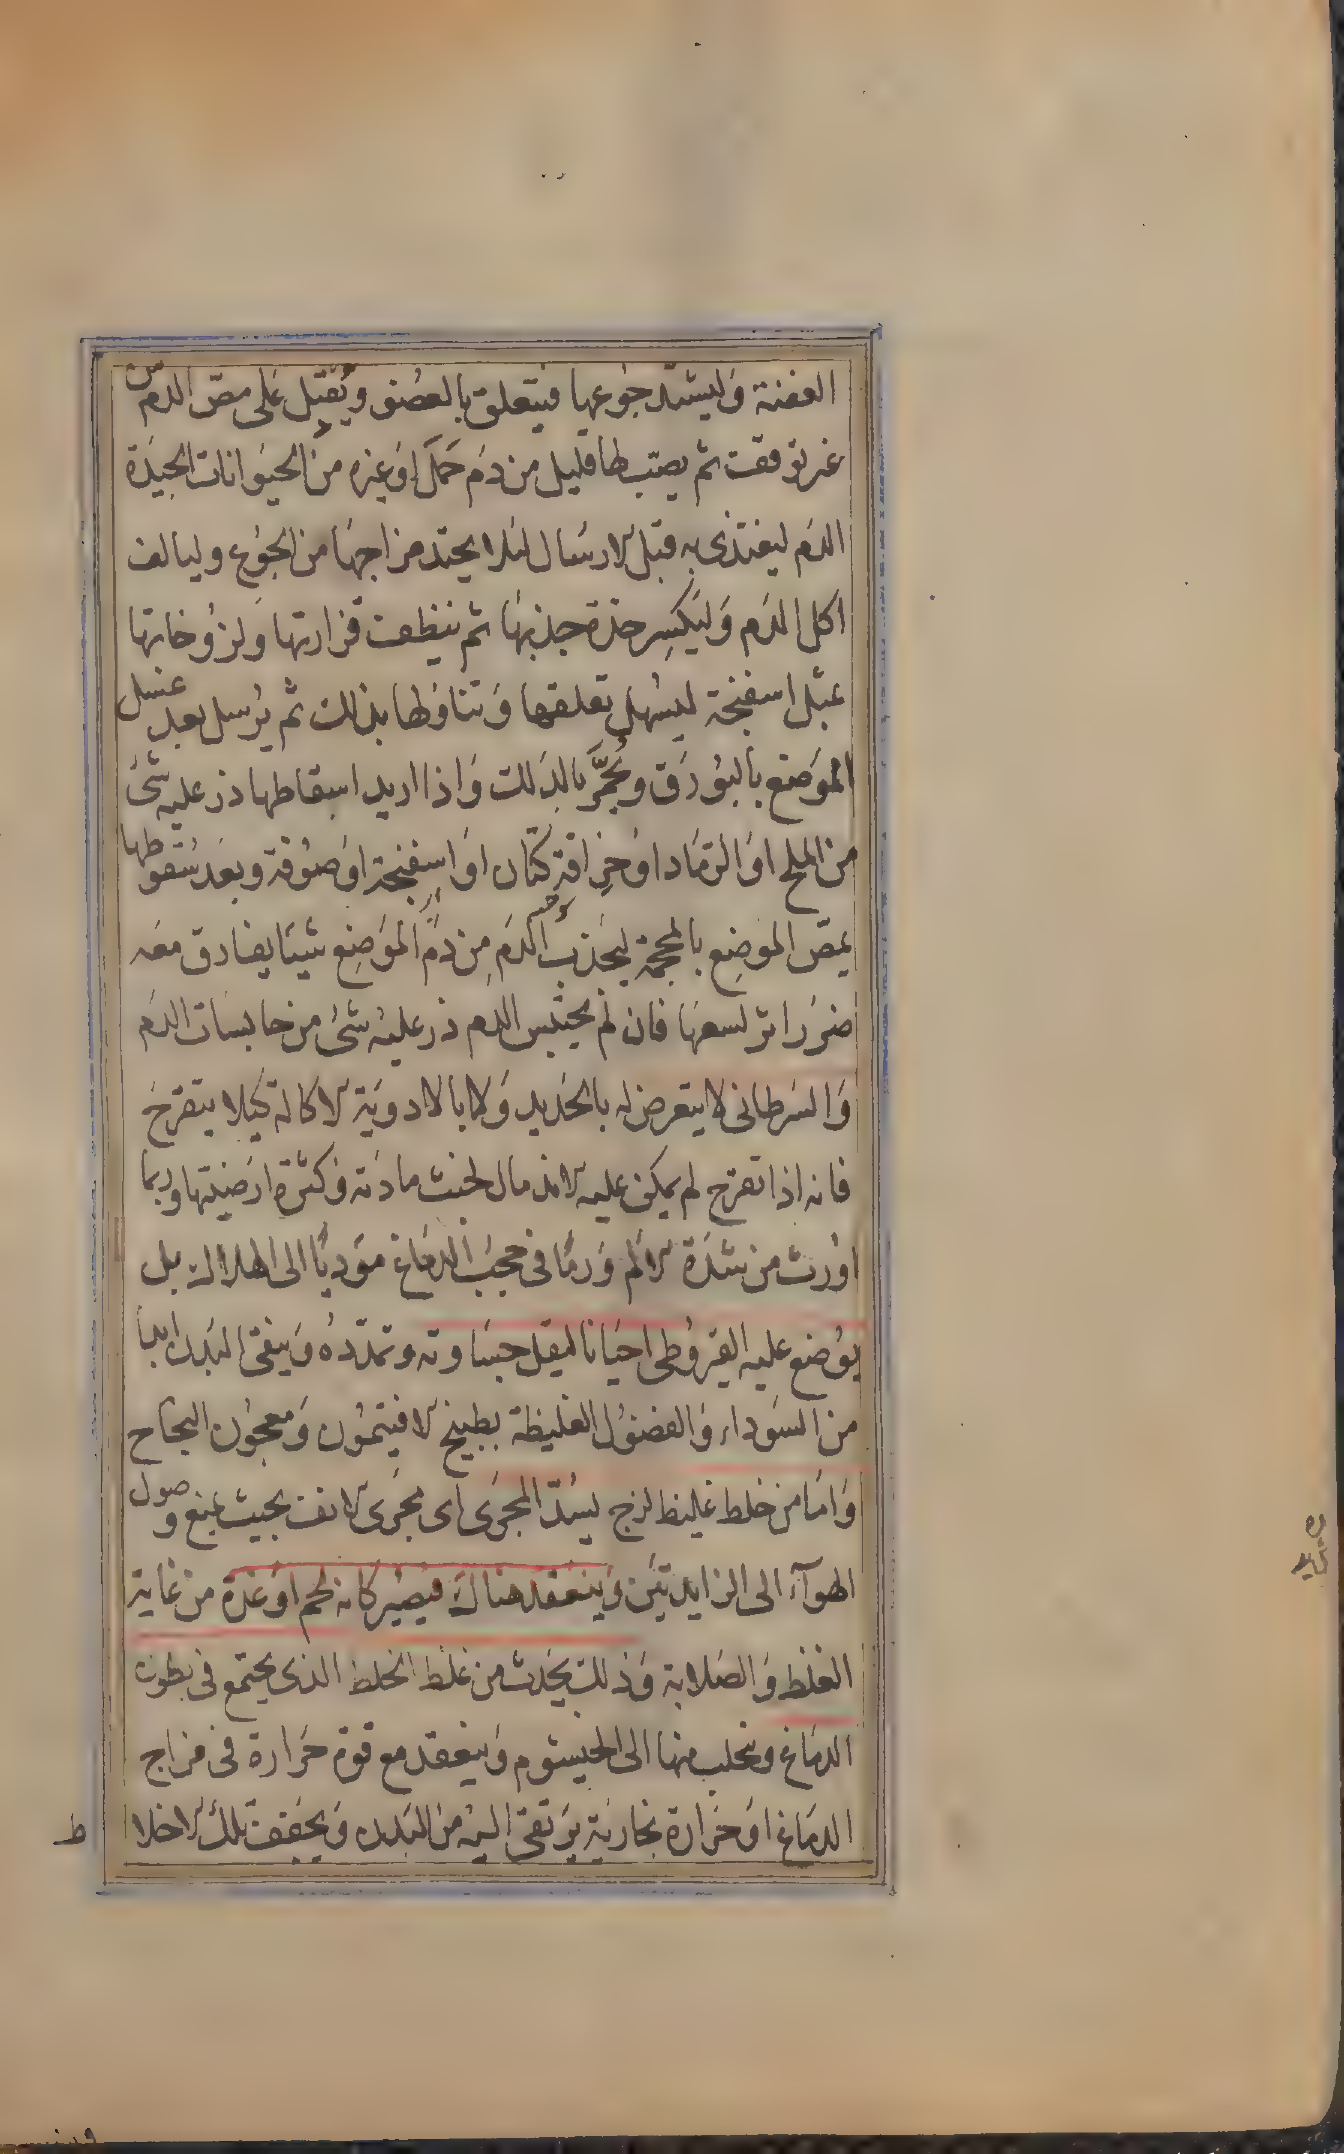 العفنة وليشتد جوعها فيتعلق بالعضو ويقبل على مص الدم من
غير توقف ثم يصب لها قليل من دم حمل او غيره من الحيوانات الجيدة
الدم ليغتذى به قبل الارسال لئلا يحتد مزاجها من الجوع وليالف
اكل الدم وليكسر حدة جذبها ثم ينظف قذارتها ولزوخاتها
بمثل اسفنجة ليسهل تعلقها وتناولها بذلك ثم يرسل بعد غسل
الموضع بالبورق ويحمر بالدلك واذا اريد اسقاطها ذر عليه شئ
من الملح او الرماد او حراقة كتان او اسفنجة او صوفة وبعد سقوطها
يمص الموضع بالمحجمة ليجذب الدم من دم الموضع شيئا يفارق معه
ضرر اثر لسعها فان لم يحتبس الدم ذر عليه شئ من حابسات الدم
والسرطانى لا يتعرض له بالحديد ولا بالادوية الاكالة كيلا يتقرح
فانه اذا تقرح لم يمكن عليه الاندمال لخبث مادته وكثرة ارضيتها وربما
اورث من شدة الالم ورما فى حجب الدماغ موديا الى الهلاك بل
يوضع عليه القيروطى احيانا ليقل جساوته وتمدده وينقى البدن دايما
من السوداء والفضول الغليظة بطبيخ الافيتمون ومعجون النجاح
واما من خلط غليظ لزج يسد المجرى اى مجرى الانف بحيث يمنع وصول
الهوآء الى الزايدتين وينعقد هناك فيصير كانه لحم او غدة من غاية
الغلظ والصلابة وذلك يحدث من غلظ الخلط الذى يجتمع فى بطون
الدماغ ويتحلب منها الى الخيشوم وينعقد مع قوة حرارة فى مزاج
الدماغ او حرارة بخارية يرتقى اليه من البدن ويجفف تلك الاخلا
ط